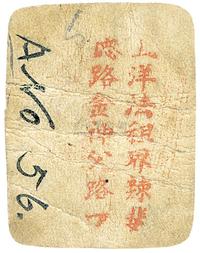 上洋法租界辣斐
德路金神父路
A No 56.